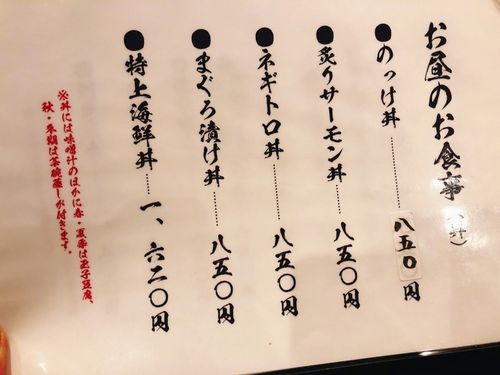 お昼のお食事（丼）
●のっけ丼………八五〇円
●炙りサーモン丼……八五〇円
●ネギトロ丼………八五〇円
●まぐろ漬け丼……八五〇円
●特上海鮮丼……一、六二〇円
※丼には味噌汁のほかに春・夏季は玉子豆腐、
秋・冬期は茶碗蒸しが付きます。